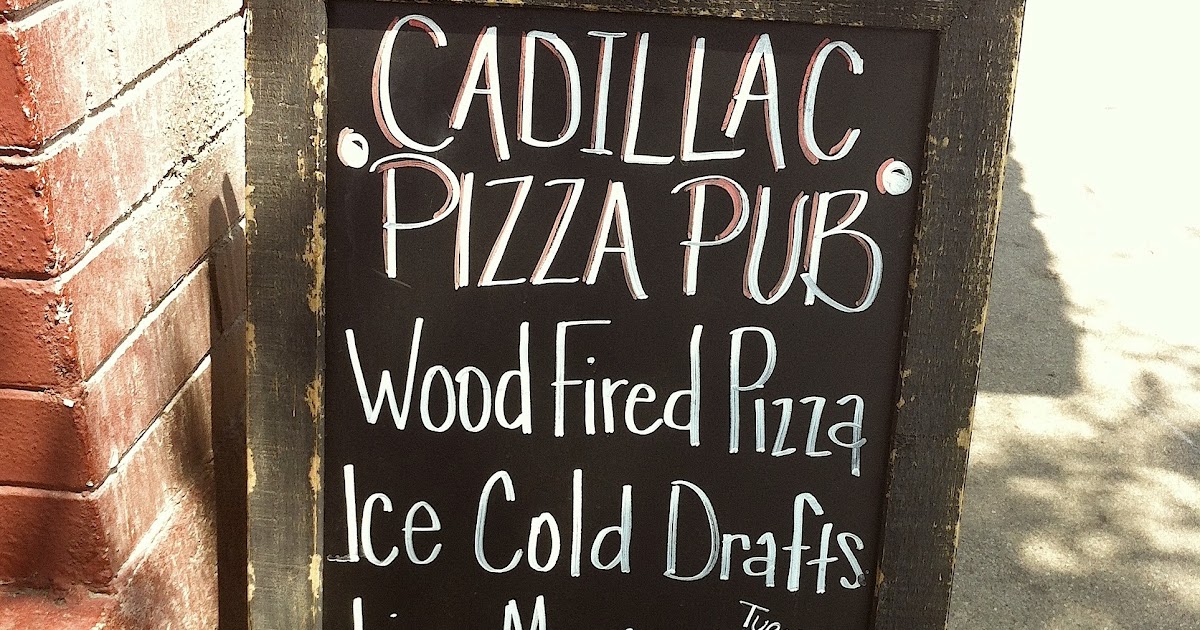 CADILLAC
PIZZA PUB
Wood Fired Pizza
Ice Cold Drafts